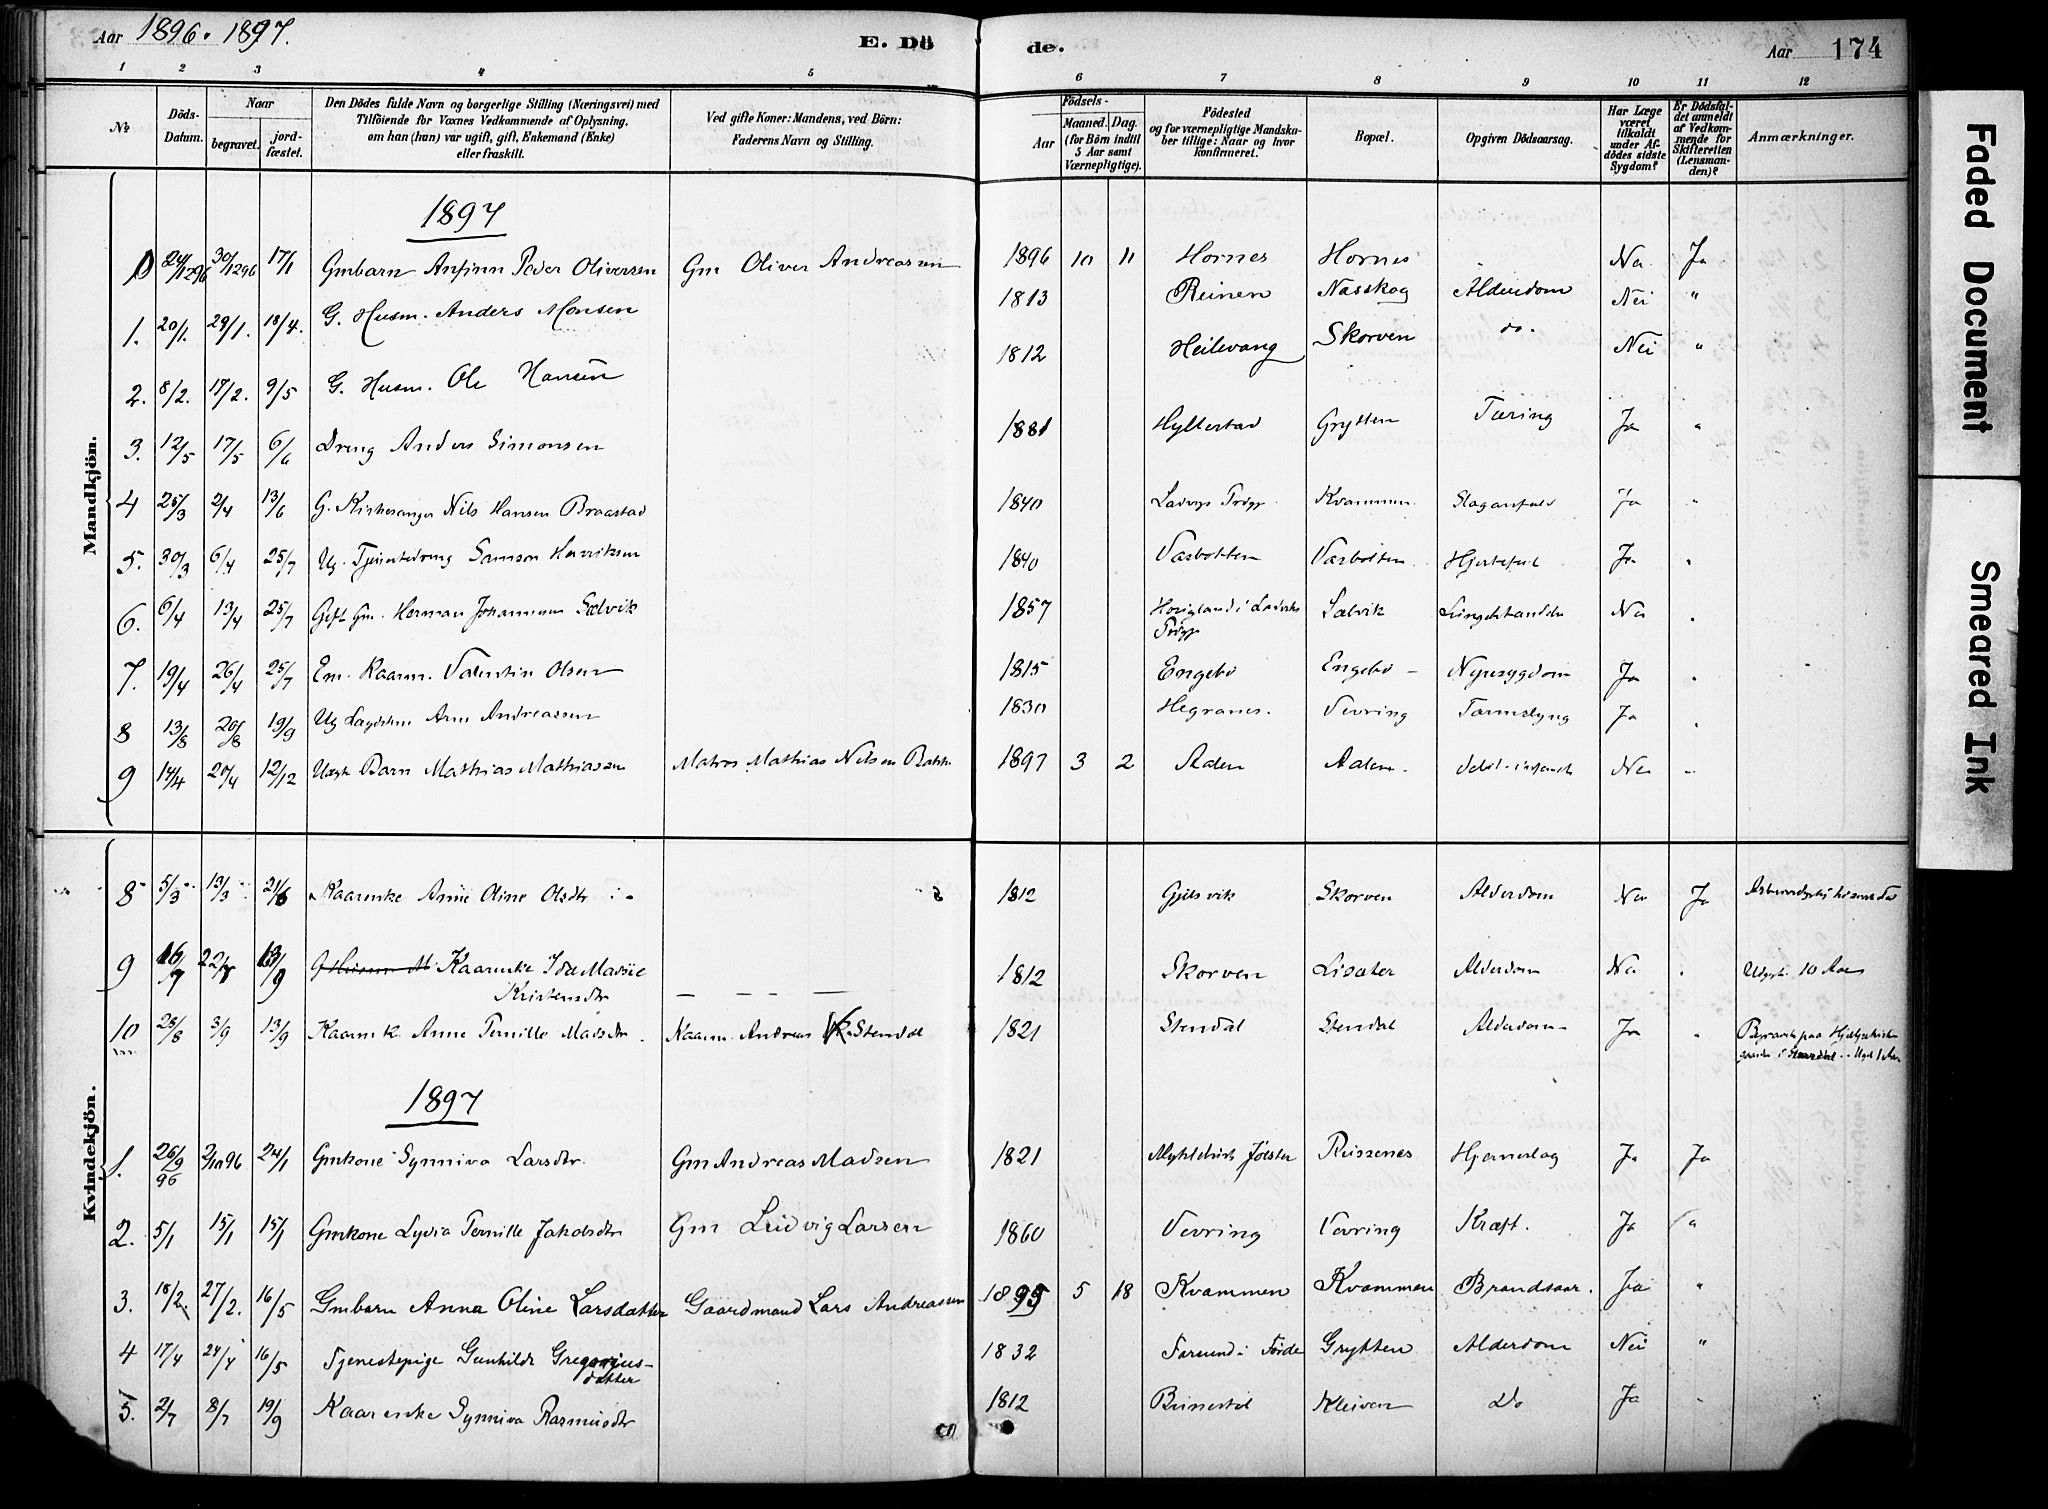 Aar 1896. 1897.
E. Dö
de.
Aar 174
1 2 3 4 5 6 7 8 9 10 11 12
No
Döds-Datum.
Naar
begravet.
jord-fæstet.
Den Dödes fulde Navn og borgerlige Stilling (Næringsvei) med
Tilföiende for Voxnes Vedkommende af Oplysning,
om han (hun) var ugift, gift, Enkemand (Enke)
eller fraskilt.
Ved gifte Koner: Mandens, ved Börn:
Faderens Navn og Stilling.
Födsels-
Aar
Maaned. Dag.
(for Börn indtil
5 Aar samt
Værnepligtige).
Födested
og for værnepligtige Mandska-
ber tillige: Naar og hvor
konfirmeret.
Bopæl.
Opgiven Dödsaarsag.
Har Læge
været
tilkaldt
under Af-
dödes sidste
Sygdom?
Er Dödsfal-
det anmeldt
af Vedkom-
mende for
Skifteretten
(Lensman-
den)?
Anmærkninger.
Mandkjön.
1897
24/1296 30/1296 17/1 Gmbarn Anfinn Peder Oliversen Gm Oliver Andreassen 1896 10 11 Hornes Hornes Nei Ja
1. 20/1. 29/1. 18/4. G. Husm. Anders Monsen 1813 Reinen Nasskog Alderdom Nei "
2. 8/2. 17/2. 9/5 G. Husm. Ole Hansen 1812 Heilevang Skorven do. Nei "
3. 12/5 17/5 6/6 Dreng Anders Simonsen 1881 Hyllestad Grytten Tæring Ja "
4 25/3 2/4 13/6 G. Kirkesanger Nils Hansen Braastad 1840 Ladvigs Prgjp Kvammen Slaganfald Ja "
5. 30/3 6/4 25/7 Ug. Tjenestedreng Samson Henriksen 1840 Varbotten Varbotten Hjertefeil Ja "
6. 6/4 13/4 25/7 Gift Gm. Herman Johannesen Sælvik 1857 Sælvik Nei "
7. 19/4 26/4 25/7 Em. Kaarm. Valentin Olsen 1815 Engebø Engebø Nyresygdom Ja "
8 13/8 20/8 19/9 Ug Lægdslem Arne Andreassen 1830 Hegranes. Vevring Tarmslyng Ja "
9 14/4 20/4 12/12 Uægte Barn Mathias Mathiassen Matros Mathias Nilsen 1897 3 2 Aalen Aalen Nei "
Kvindekjön.
8 5/3 13/3 21/6 Kaarenke Anne Oline Olsdtr 1812 Gjelsvik Skorven Alderdom Nei Ja
9 16/7 22/7 13/9 Kaarenke Ida Madsie
Kristensdtr 1812 Skorven Lisæter Alderdom Nei " Udygt. 10 Aar
10 25/8 3/9 13/9 Kaarm k. Anne Pernille Madsdtr Kaarm. Andreas Stendal 1821 Stendal Stendal Alderdom Ja "
1897
1. 26/9 96 2/10 96 24/1 Gmkone Synniva Larsdtr. Gm Andreas Madsen 1821 Myklebust Jølster Reissenes Hjerneslag Ja Ja
2. 5/1 15/1 15/1 Gmkone Lydia Pernille Jakobsdtr Gm Ludvig Larsen 1860 Vevring Vevring Kræft. Ja "
3. 18/2. 27/2. 16/5 Gmbarn Anna Oline Larsdatter Gaardmand Lars Andreassen 1895 5 18 Kvammen Kvammen Brandsaar. Ja "
4 17/4 24/4 16/5 Tjenestepige Gunhilde Gregorius-
datter 1832 Farsund i Førde Grytten Alderdom Nei "
5. 2/7 8/7 19/9 Kaarenke Synniva Rasmusdtr 1812 Kleiven Do Ja "
Faded Document
Smeared Ink